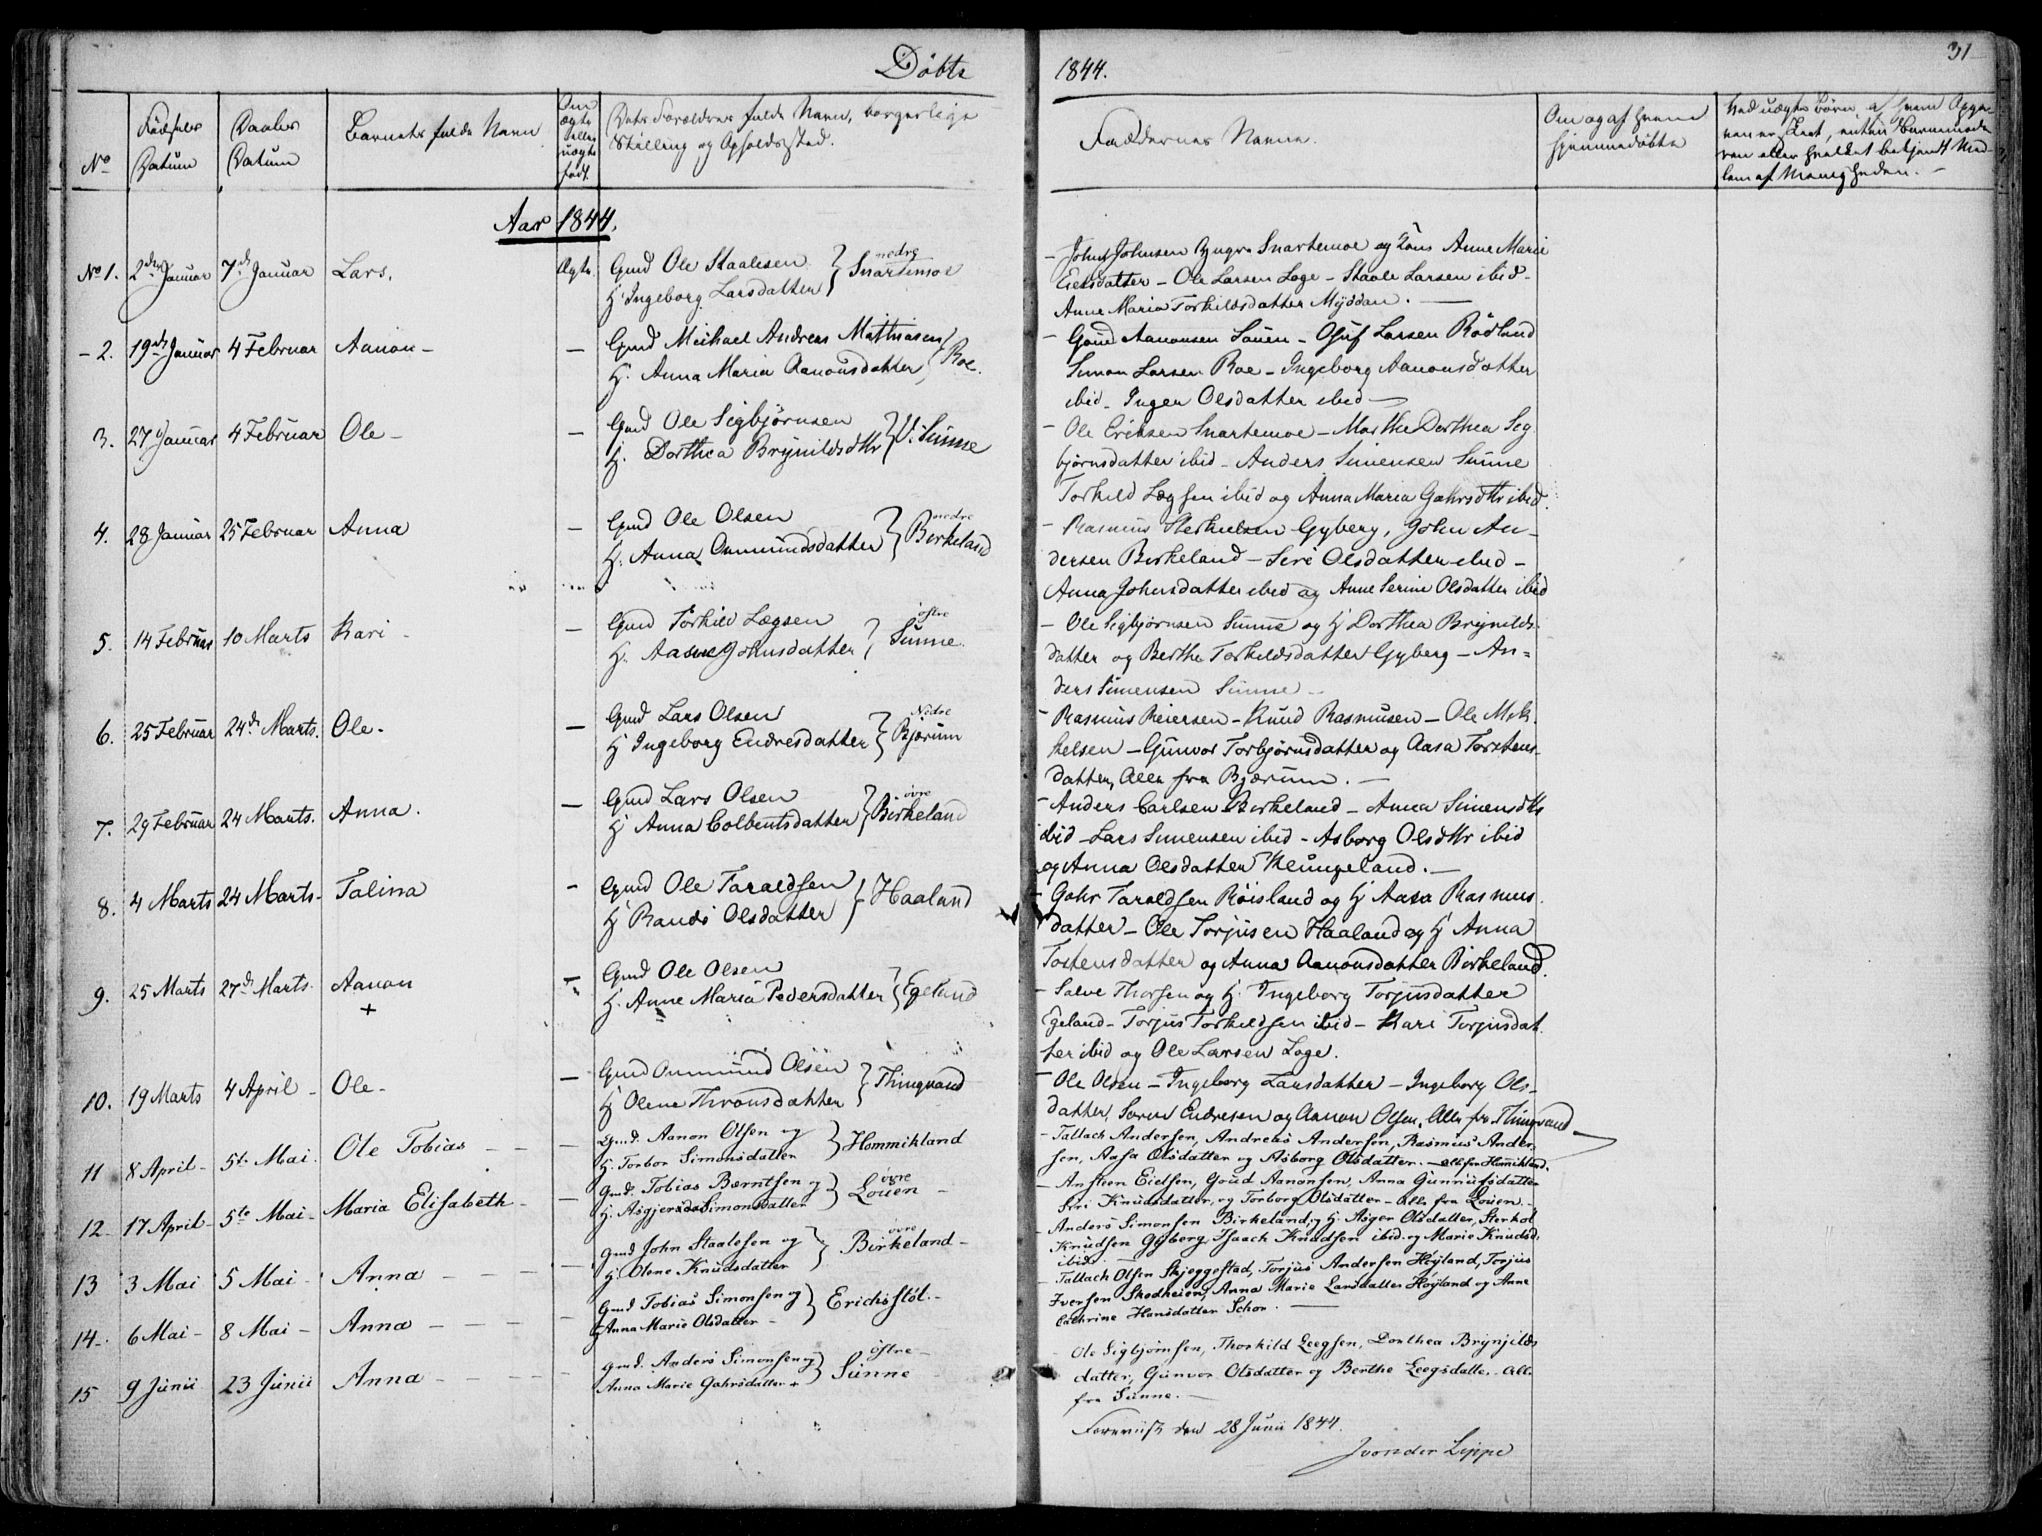 Döbte
1844.
31
No
Födsels Datum
Daabs Datum
Barnets fulde Navn
Om ægte eller uægte födt.
Dets Forældres fulde Navn, borgerlige
Stilling og Opholdssted.
Faddernes Navne.
Om og af hvem
hjemmedöbte
Aar 1844.
No 1. 2den Januar 7de Januar Lars. Ægte. Gmd Ole Staalesen
H. Ingeborg Larsdatter } nedre Snartemoe
- John Johnsen Yngre Snartemoe og Anne Marie
Eielsdatter - Ole Larsen Loge - Staale Larsen ibid -
Anne Maria Torkildsdatter Myddan. -
- 2. 19de Januar 4 Februar Aanon - - Gmd Michael Andreas Mathiasen
H. Anna Maria Aanonsdatter } Roe.
- Goud Aanonsen Souen - Osuf Larsen Rödland
Simon Larsen Roe - Ingeborg Aanonsdatter
ibid - Inger Olsdatter ibid -
3. 27 Januar 4 Februar Ole - - Gmd Ole Sigbjörnsen
H. Dorthea Brynildsdttr } V. Sunne
- Ole Eriksen Snartemoe - Marthe Dorthea Sig
björnsdatter ibid - Anders Simensen Sunne
Torkild Lægsen ibid og Anna Maria Gahrsdttr ibid.
4. 28 Januar 25 Februar Anna - Gmd Ole Olsen
H. Anna Onmundsdatter } nedre Birkeland
- Rasmus Sterkulsen Gyberg, John An-
dersen Birkeland - Siri Olsdatter ibid -
Anna Johnsdatter ibid og Anne Serine Olsdatter ibid
5. 14 Februar 10 Marts Kari - - Gmd Torkild Lægsen
H. Aasne Johnsdatter } östre Sunne.
- Ole Sigbjörnsen Sunne og H. Dorthea Brynilds-
datter og Berthe Torkildsdatter Gyberg - An=
ders Simensen Sunne -
6. 25 Februar 24de Marts. Ole - - Gmd Lars Olsen
H. Ingeborg Endresdatter } Nedre Bjærum
- Rasmus Reiersen - Knud Rasmusen - Ole Mik-
kelsen - Gunvor Torbjörnsdatter og Aasa Torstens-
datter, Alle fra Bjærum. -
7. 29 Februar 24 Marts. Anna. - Gmd Lars Olsen
H. Anna Colbentsdatter } övre Birkeland
- Anders Carlsen Birkeland - Anna Simensdttr
ibid - Lars Simensen ibid - Asborg Olsdttr ibid
og Anna Olsdatter Kleungeland. -
8. 4 Marts 24 Marts - Talina - Gmd Ole Taraldsen
H. Randi Olsdatter } Haaland
- Gahr Taraldsen Röisland og H. Aasa Rasmus
datter - Ole Torjusen Haaland og H. Anna
Tostensdatter og Anna Aanonsdatter Birkeland.
9. 25 Marts 27de Marts. Aanon
+
- Gmd Ole Olsen
H. Anne Maria Pedersdatter } Egeland
- Salve Thorsen og H. Ingeborg Torjusdatter
Egeland - Torjus Torkildsen ibid - Kari Torjusdat
ter ibid og Ole Larsen Loge.
10. 19 Marts 4 April - Ole - - Gmd Onmund Olsen
H. Olene Thronsdatter } Thingvand
- Ole Olsen - Ingeborg Larsdatter - Ingeborg Ols-
datter, Soren Endresen og Aanon Olsen, Alle fra Thingvand -
11 8 April - 5te Mai. Ole Tobias - - - Gmd. Aanon Olsen og
H. Torbor Simonsdatter } Hommikland
- Tallach Andersen, Andreas Andersen, Rasmus Ander-
sen, Aasa Olsdatter og Asborg Olsdatter. - alle fra Homikland.
12. 17 April - 5te Mai - Maria Elisabeth - - Gmd. Tobias Berntsen og
H. Asgjerd Simonsdatter } övre Louen -
- Ansteen Eielsen, Goud Aanonsen, Anna Gunnufsdatter
Siri Knudsdatter, og Torborg Olsdatter - alle fra Louen. -
13 3 Mai 5 Mai - Anna - - - - Gmd John Staalesen og
H. Olene Knudsdatter } övre Birkeland -
- Anders Simonsen Birkeland og H. Asger Olsdatter, Sterkol
Knudsen Gyberg, Isaach Knudsen ibid. og Marie Knudsd.
ibid.
14. 6 Mai - 8 Mai - Anna - - - - Gmd Tobias Simonsen og
H. Anna Marie Olsdatter - } Erichsstöl. -
- Tallach Olsen Skjeggestad, Torjus Andersen Höyland, Torjus
Iversen Skodheien, Anna Marie Larsdatter Höyland og Anne
Cathrine Hansdatter Schor. -
15 9 Junii 23 Junii Anna - - - - Gmd. Anders Simonsen og
Anna Marie Gahrsdatter } östre Sunne -
- Ole Sigbjörnsen, Thorkild Leegsen, Dorthea Brynjelds
datter, Gunvor Olsdatter og Berthe Leegsdatter - Alle
fra Sunne. -
Foreviist den 28 Junii 1844.
J von der Lippe